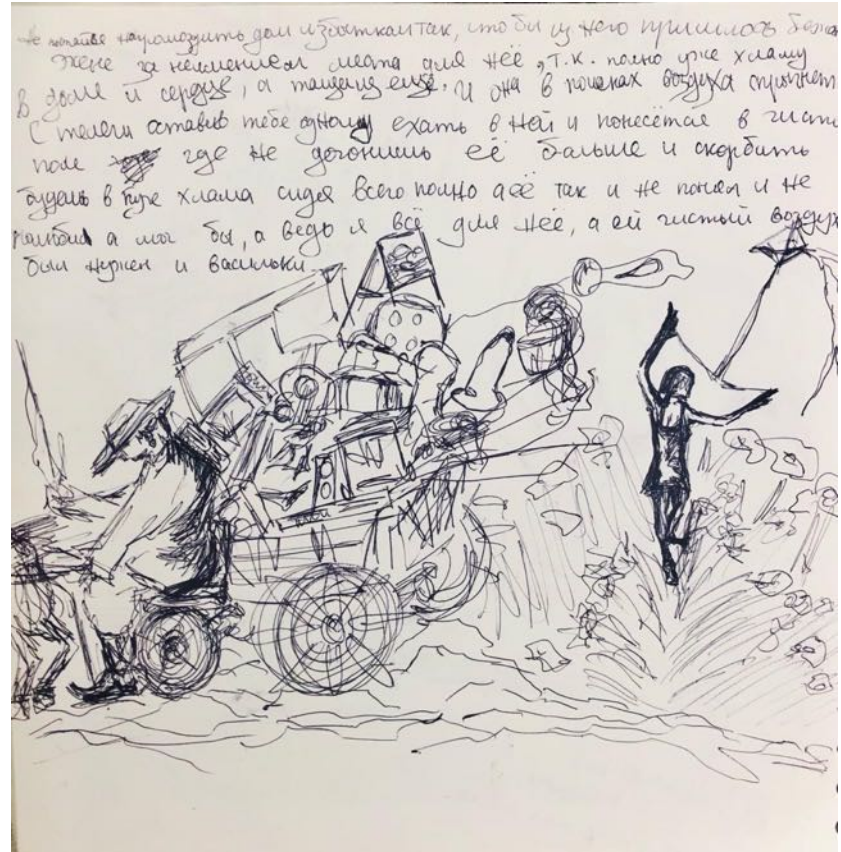 Не пытайся нагромоздить дом избытками так, чтобы из него пришлось бежать
Жене за неимением места для неё, т.к. полно уже хламу
в доме и сердце, а тащишь ещё. И она в поисках воздуха спрыгнет
С телеги оставив тебе одному ехать в ней и понесётся в чисто
поле где не догонишь её больше и скорбить
будешь в куче хлама сидя всего полно а её так и не понял и не
полюбил а мог бы, а ведь я всё для неё, а ей чистый воздух
был нужен и васильки